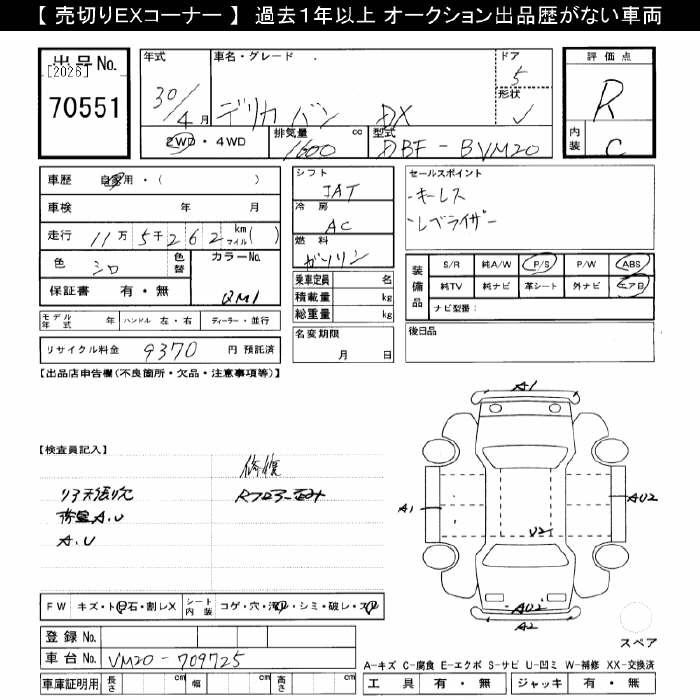 【 売切りEXコーナー 】 過去1年以上 オークション出品歴がない車両
出品No. [2026] 70551
年式 30/4月
車名・グレード デリカ バン DX
ドア 5
形状
2WD・4WD
排気量 1600 cc
型式 DBF-BVM20
評価点 R
内装 C
車歴 自家用・( )
車検 年 月
走行 11万5千262 km マイル( )
色 シロ 色替
カラーNo. QM1
保証書 有・無
モデル年式 年 ハンドル 左・右 ディーラー・並行
リサイクル料金 9370 円 預託済
シフト IAT
冷房 AC
燃料 ガソリン
乗車定員 名
積載量 kg
総重量 kg
名変期限 月 日
セールスポイント
-キーレス
-レベライザー
装備品 S/R 純A/W P/S P/W ABS
純TV 純ナビ 革シート 外ナビ エアB
ナビ型番:
後日品
【出品店申告欄(不良箇所・欠品・注意事項等)】
【検査員記入】
修復
リヨ天張穴
荷室A.U
A.U
A1
A1
AU2
U2
AU2
A2
スペア
FW キズ・トビ石・割レX
シート内装 コゲ・穴・汚レ・シミ・破レ・スレ
登録No.
車台No. VM20-709725
車庫証明用 長さ cm 幅 cm 高さ cm
A-キズ C-腐食 E-エクボ S-サビ U-凹ミ W-補修 XX-交換済
工具 有・無 ジャッキ 有・無